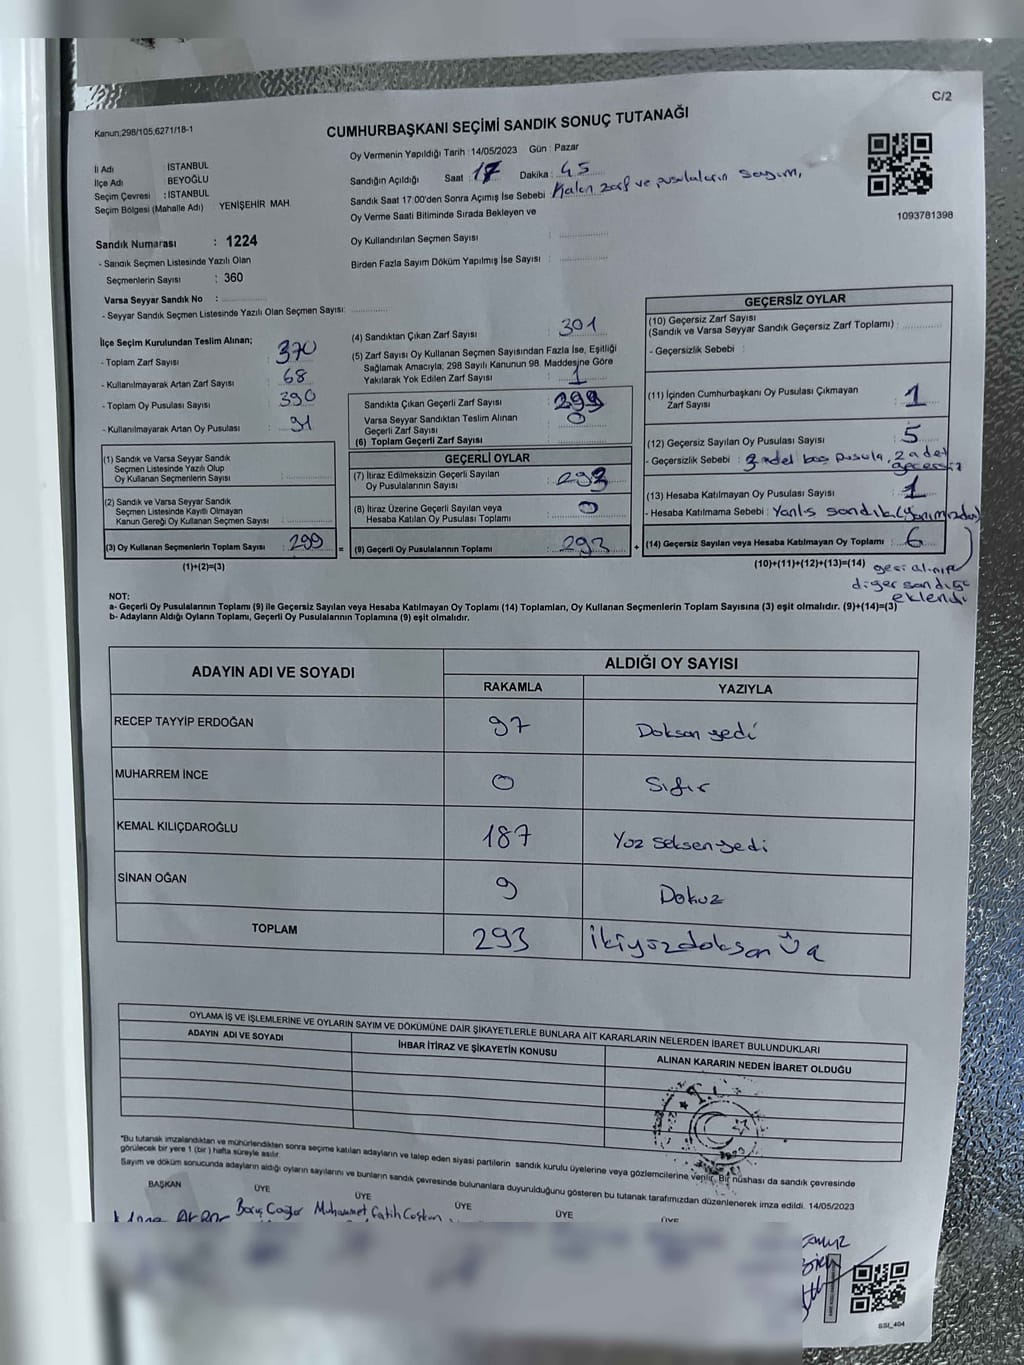 C/2
Kanun;298/105,6271/18-1
CUMHURBAŞKANI SEÇİMİ SANDIK SONUÇ TUTANAĞI
1093781398
İl Adı : İSTANBUL
İlçe Adı : BEYOĞLU
Seçim Çevresi : İSTANBUL
Seçim Bölgesi (Mahalle Adı) YENİŞEHİR MAH
Sandık Numarası : 1224
- Sandık Seçmen Listesinde Yazılı Olan
Seçmenlerin Sayısı : 360
Varsa Seyyar Sandık No :
- Seyyar Sandık Seçmen Listesinde Yazılı Olan Seçmen Sayısı:
Oy Vermenin Yapıldığı Tarih : 14/05/2023 Gün : Pazar
Sandığın Açıldığı Saat : 17 Dakika : 45
Sandık Saat 17:00'den Sonra Açımış İse Sebebi Kalan zarf ve pusulaların sayım,
Oy Verme Saati Bitiminde Sırada Bekleyen ve
Oy Kullandırılan Seçmen Sayısı :
Birden Fazla Sayım Döküm Yapılmış İse Sayısı :
İlçe Seçim Kurulundan Teslim Alınan;
- Toplam Zarf Sayısı : 370
- Kullanılmayarak Artan Zarf Sayısı : 68
- Toplam Oy Pusulası Sayısı : 390
- Kullanılmayarak Artan Oy Pusulası : 91
(1) Sandık ve Varsa Seyyar Sandık
Seçmen Listesinde Yazılı Olup
Oy Kullanan Seçmenlerin Sayısı :
(2) Sandık ve Varsa Seyyar Sandık
Seçmen Listesinde Kayıtlı Olmayan
Kanun Gereği Oy Kullanan Seçmen Sayısı :
(3) Oy Kullanan Seçmenlerin Toplam Sayısı : 299 =
(1)+(2)=(3)
(4) Sandıktan Çıkan Zarf Sayısı : 301
(5) Zarf Sayısı Oy Kullanan Seçmen Sayısından Fazla İse, Eşitliği
Sağlamak Amacıyla; 298 Sayılı Kanunun 98. Maddesine Göre
Yakılarak Yok Edilen Zarf Sayısı : 1
Sandıkta Çıkan Geçerli Zarf Sayısı : 299
Varsa Seyyar Sandıktan Teslim Alınan
Geçerli Zarf Sayısı : 0
(6) Toplam Geçerli Zarf Sayısı :
GEÇERLİ OYLAR
(7) İtiraz Edilmeksizin Geçerli Sayılan
Oy Pusulalarının Sayısı : 293
(8) İtiraz Üzerine Geçerli Sayılan veya
Hesaba Katılan Oy Pusulası Toplamı : 0
(9) Geçerli Oy Pusulalarının Toplamı : 293 +
GEÇERSİZ OYLAR
(10) Geçersiz Zarf Sayısı
(Sandık ve Varsa Seyyar Sandık Geçersiz Zarf Toplamı) :
- Geçersizlik Sebebi :
(11) İçinden Cumhurbaşkanı Oy Pusulası Çıkmayan
Zarf Sayısı : 1
(12) Geçersiz Sayılan Oy Pusulası Sayısı : 5
- Geçersizlik Sebebi : 3 adet boş pusula, 2 adet
geçersiz
(13) Hesaba Katılmayan Oy Pusulası Sayısı : 1
- Hesaba Katılmama Sebebi : Yanlış sandık
(14) Geçersiz Sayılan veya Hesaba Katılmayan Oy Toplamı : 6
(10)+(11)+(12)+(13)=(14) geri alınıp
diğer sandığa
eklendi
NOT:
a- Geçerli Oy Pusulalarının Toplamı (9) ile Geçersiz Sayılan veya Hesaba Katılmayan Oy Toplamı (14) Toplamları, Oy Kullanan Seçmenlerin Toplam Sayısına (3) eşit olmalıdır. (9)+(14)=(3)
b- Adayların Aldığı Oyların Toplamı, Geçerli Oy Pusulalarının Toplamına (9) eşit olmalıdır.
ADAYIN ADI VE SOYADI
ALDIĞI OY SAYISI
RAKAMLA YAZIYLA
RECEP TAYYİP ERDOĞAN 97 Doksan yedi
MUHARREM İNCE 0 Sıfır
KEMAL KILIÇDAROĞLU 187 Yüz seksen yedi
SİNAN OĞAN 9 Dokuz
TOPLAM 293 İkiyüzdoksan Üç
OYLAMA İŞ VE İŞLEMLERİNE VE OYLARIN SAYIM VE DÖKÜMÜNE DAİR ŞİKAYETLERLE BUNLARA AİT KARARLARIN NELERDEN İBARET BULUNDUKLARI
ADAYIN ADI VE SOYADI İHBAR İTİRAZ VE ŞİKAYETİN KONUSU ALINAN KARARIN NEDEN İBARET OLDUĞU
*Bu tutanak imzalandıktan ve mühürlendikten sonra seçime katılan adayların ve talep eden siyasi partilerin sandık kurulu üyelerine veya gözlemcilerine verilir. Bir nüshası da sandık çevresinde
görülecek bir yere 1 (bir) hafta süreyle asılır.
Sayım ve döküm sonucunda adayların aldığı oyların sayılarını ve bunların sandık çevresinde bulunanlara duyurulduğunu gösteren bu tutanak tarafımızdan düzenlenerek imza edildi. 14/05/2023
BAŞKAN ÜYE ÜYE ÜYE ÜYE ÜYE
Muhammet Fatih Coşkun
SSI_404